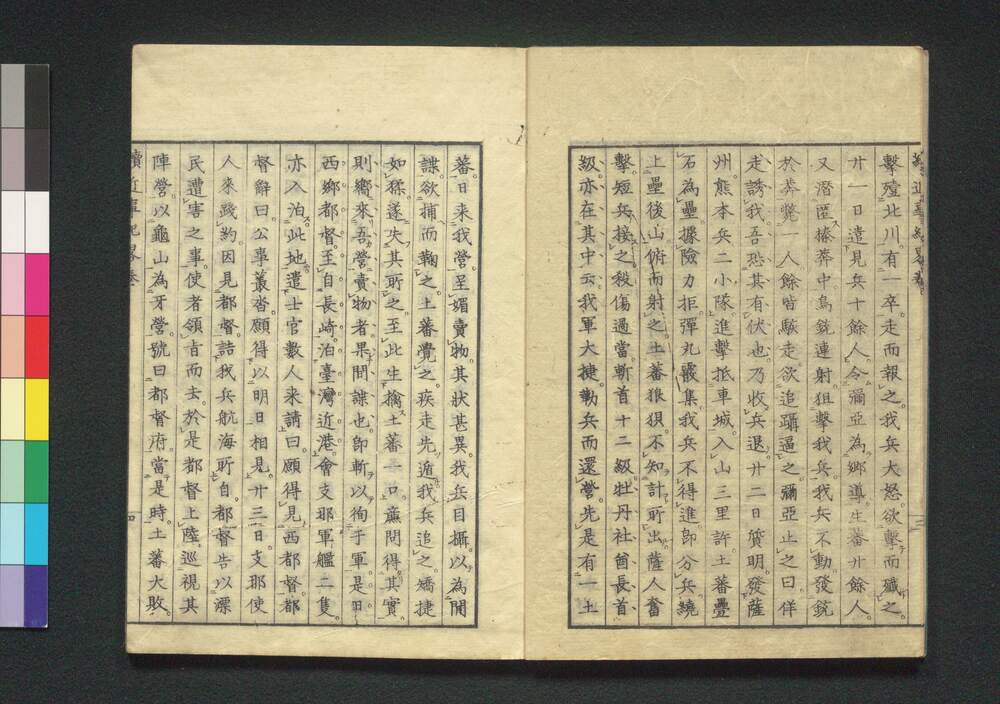 擊殪北川。有一卒走而報之。我兵大怒。欲擊而殲之。
廿一日。遠見兵十餘人。令彌亞為鄉導。生蕃廿餘人。
又潛匿榛莽中。鳥銃連射。狙擊我兵。我兵不動發銃
於蕃斃一人。餘皆駭走。欲追躡逼之。彌亞止之曰。佯
走誘我。吾恐其有伏也。乃收兵退。廿二日質明。發薩
州。熊本兵二小隊。進擊抵車城。入山三里許。土蕃疊
石為壘。據險力拒。彈丸叢集。我兵不得進。即分兵繞
上壘後山。俯而射之。土蕃狼狽。不知計所出。薩人奮
擊。短兵接之。殺傷過當。斬首十二級。牡丹社酋長首
級。亦在其中云。我軍大捷。勒兵而還營。先是有一土
蕃。日來我營。至媚賣物。其狀甚異。我兵目攝。以為間
諜。欲捕而鞠之。土蕃覺之。疾走先遁。我兵追之。矯捷
如猱。遂失其所之。至此生擒土蕃一口。鹵問得其實。
則嚮來吾營賣物者。果間諜也。即斬以徇于軍。是日。
西鄉都督。至自長崎。泊臺灣近港。會支那軍艦二隻。
亦入泊此地。遣士官數人來請曰。願得見西都督。都
督辭曰。公事叢沓。願得以明日相見。廿三日。支那使
人來踐約。因見都督。詰我兵航海所自。都督告以漂
民遭害之事。使者領旨而去。於是都督上陸。巡視其
陣營。以龜山為牙營。號曰都督府。當是時。土蕃大敗。
續近 卷
四
三